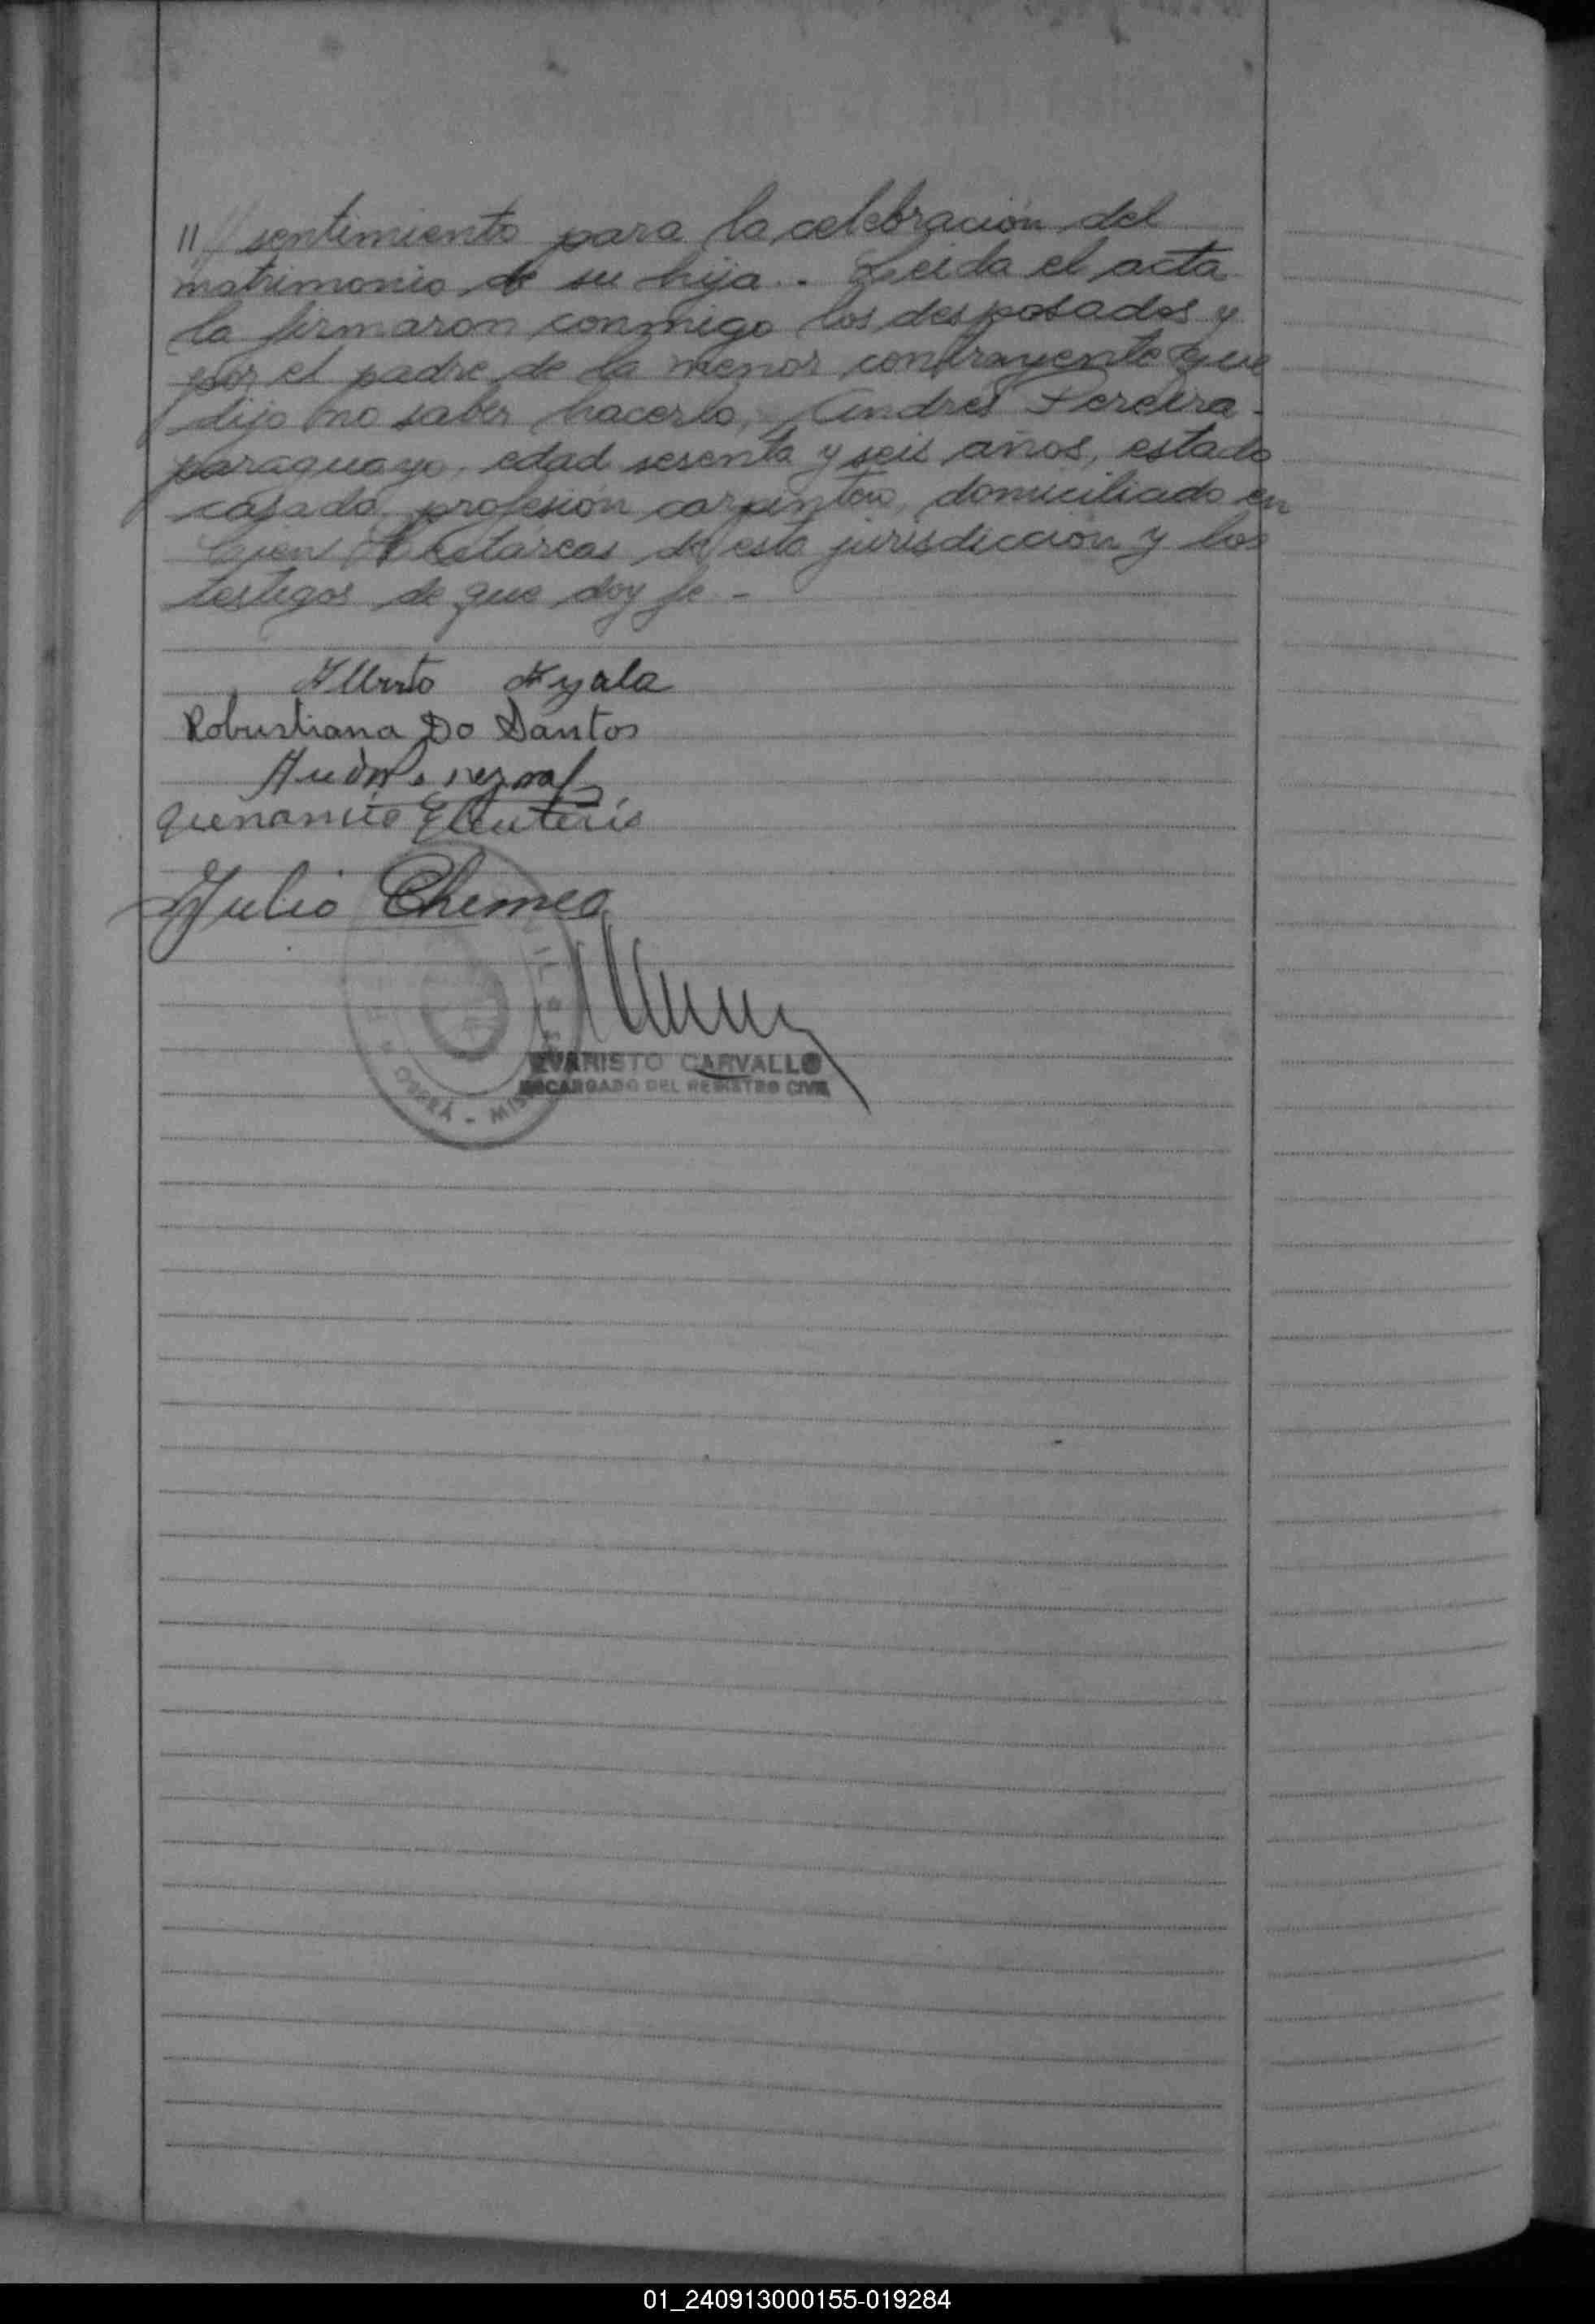 // sentimiento para la celebración del
matrimonio de su hija.. Leida el acta
la firmaron conmigo los desposados y
por el padre de la menor contrayente que
dijo no saber hacerlo, Andrés Pereira
paraguayo, edad sesenta y seis años, estado
casado profesión carpintero, domiciliado en
Cien Hectareas de esta jurisdicción y los
testigos de que doy fe -
Alberto Ayala
Robustiana Do Santos
Eleuterio
Julio
EVARISTO CARVALLO
ENCARGADO DEL REGISTRO CIVIL
OBERÁ - MIS
01_240913000155-019284